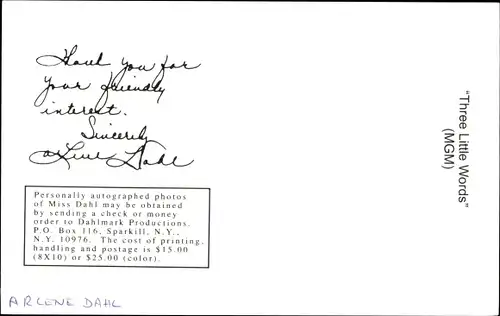 Thank you for
your friendly
interest.
Sincerely
Arlene Dahl
"Three Little Words"
(MGM)
Personally autographed photos
of Miss Dahl may be obtained
by sending a check or money
order to Dahlmark Productions.
P.O. Box 116, Sparkill, N.Y.,
N.Y. 10976. The cost of printing,
handling and postage is $15.00
(8X10) or $25.00 (color).
ARLENE DAHL